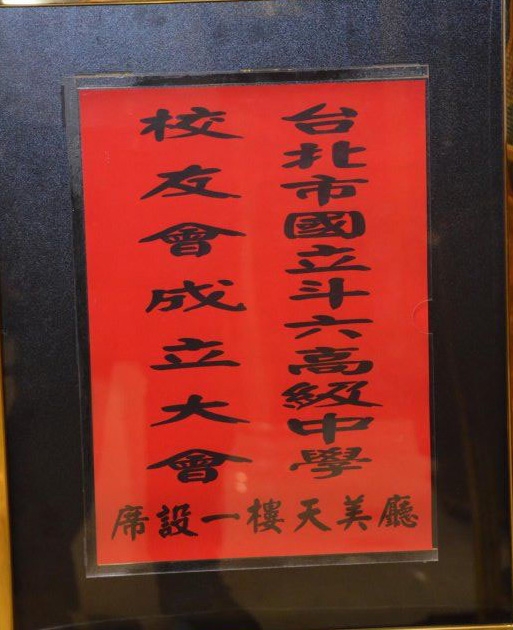 台北市國立斗六高級中學
校友會成立大會
席設一樓天美廳